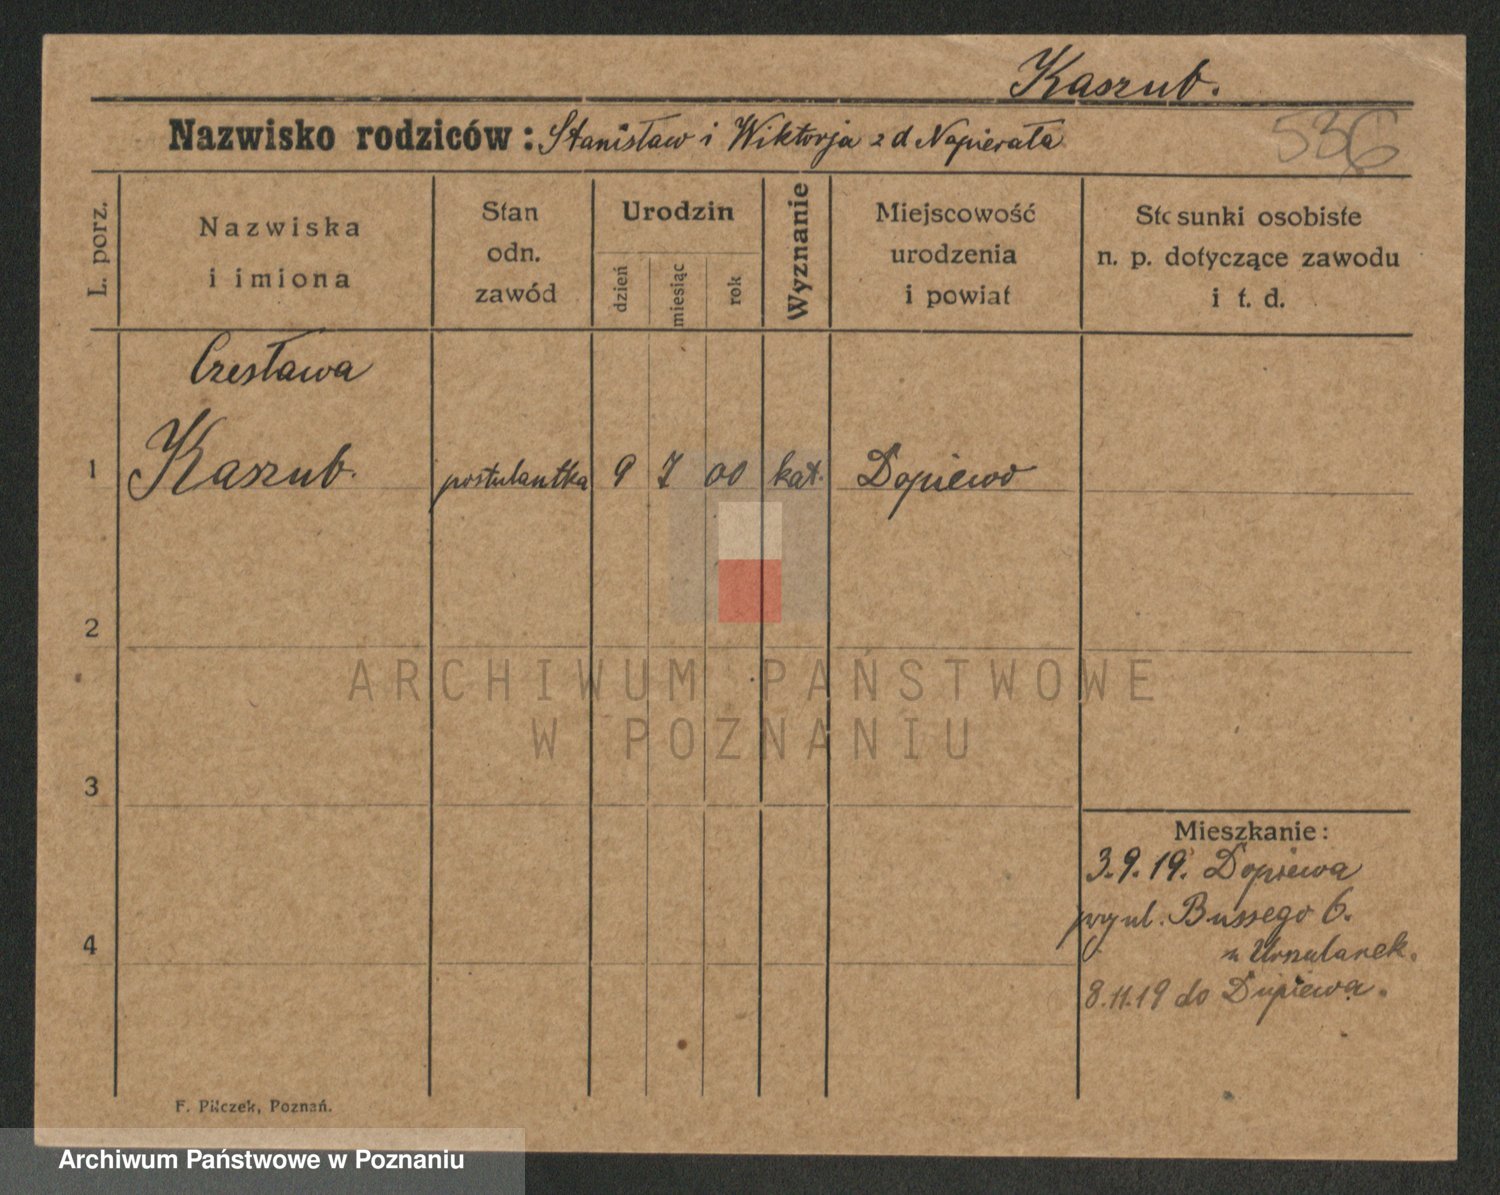 Kaszub.
Nazwisko rodziców: Stanisław i Wiktorja z d Napierała
536
L. porz.
Nazwiska
i imiona
Stan
odn.
zawód
Urodzin
dzień
miesiąc
rok
Wyznanie
Miejscowość
urodzenia
i powiat
Stosunki osobiste
n. p. dotyczące zawodu
i t. d.
Czesława
1 Kaszub. postulantka 9 7 00 kat. Dopiewo
2
ARCHIWUM PAŃSTWOWE
W POZNANIU
3
Mieszkanie:
3.9.19. Dopiewa
ul. Bussego 6.
u Urszulanek.
4
8.11.19 do Dopiewa.
F. Pilczek, Poznań.
Archiwum Państwowe w Poznaniu